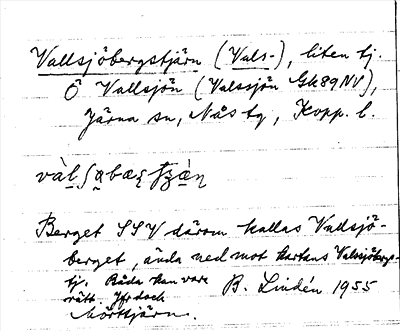 Vallsjöbergstjärn (Vals-), liten tj.
Ö Vallsjön (Valssjön Gk89NV),
Järna sn, Nås tg, Kopp. l.
Berget SSV därom kallas Vallsjö-
berget, ända ned mot kartans Valssjöbergs-
tj. Båda kan vara
rätt. Jfr dock
Mörttjärn.
B. Lindén 1955